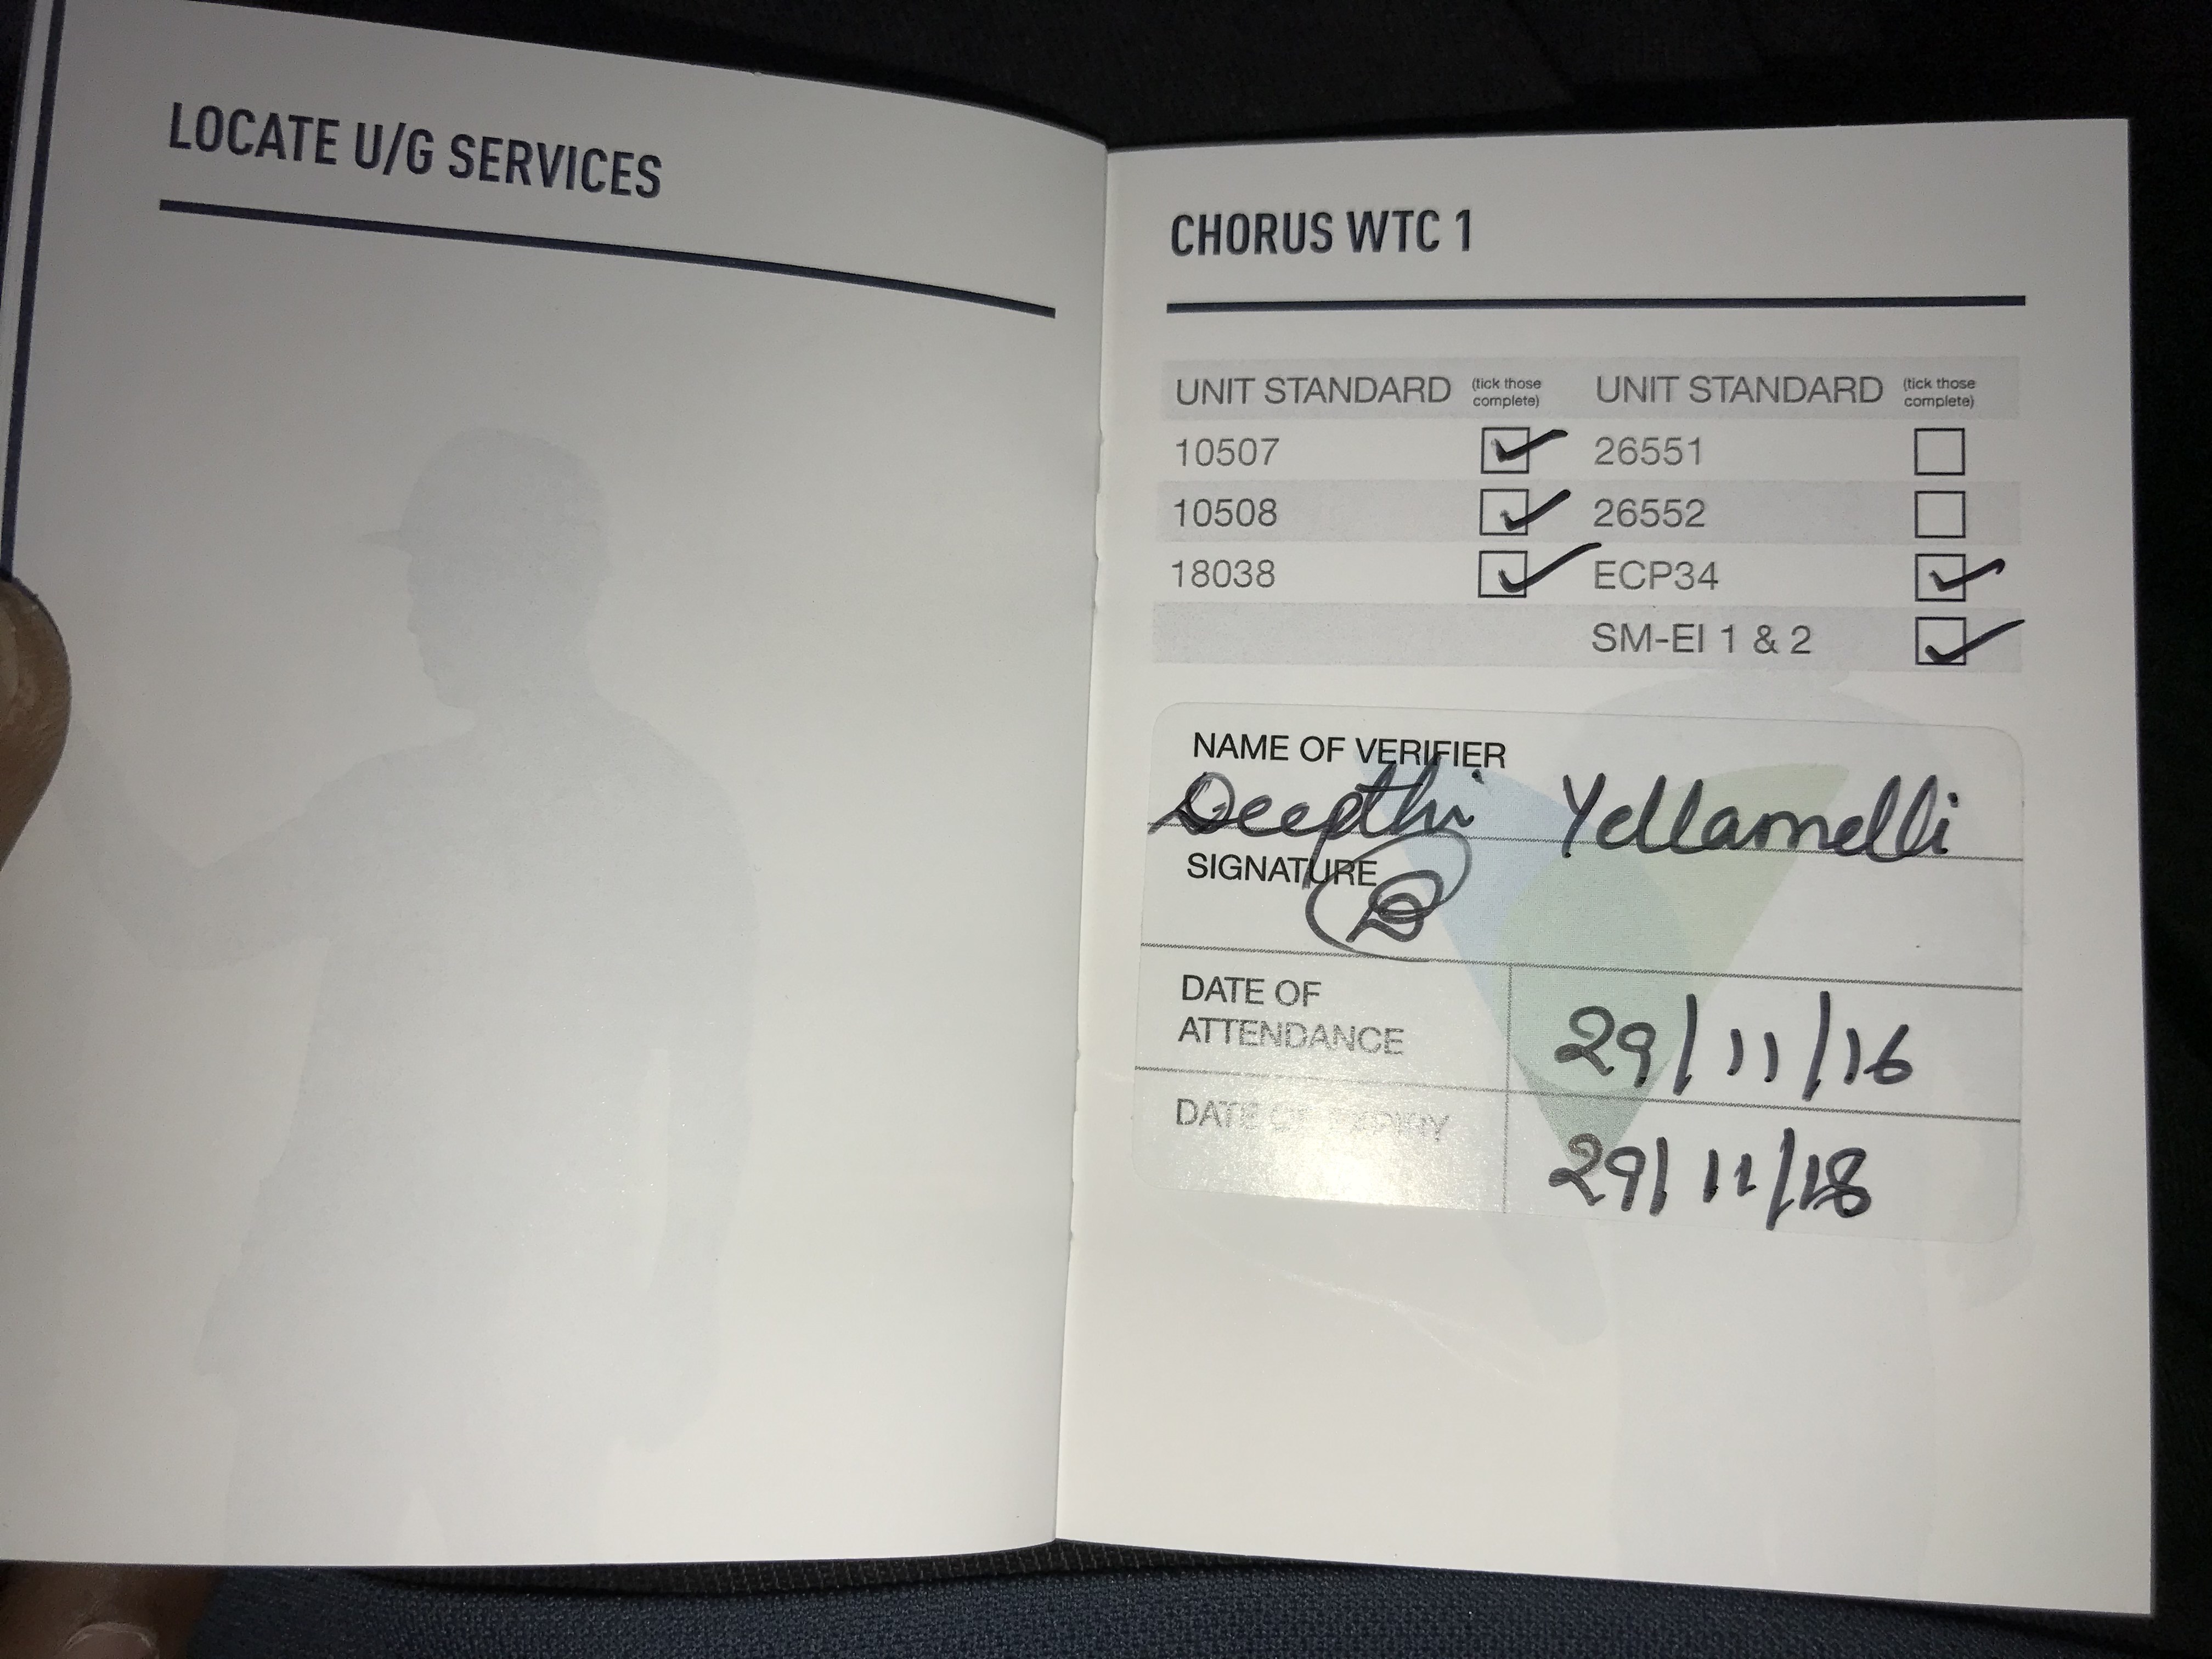 LOCATE U/G SERVICES
CHORUS WTC 1
UNIT STANDARD (tick those complete) UNIT STANDARD (tick those complete)
10507 26551
10508 26552
18038 ECP34
SM-EI 1 & 2
NAME OF VERIFIER
Deepthi Yellamelli
SIGNATURE
DATE OF
ATTENDANCE 29/11/16
DATE OF EXPIRY 29/11/18